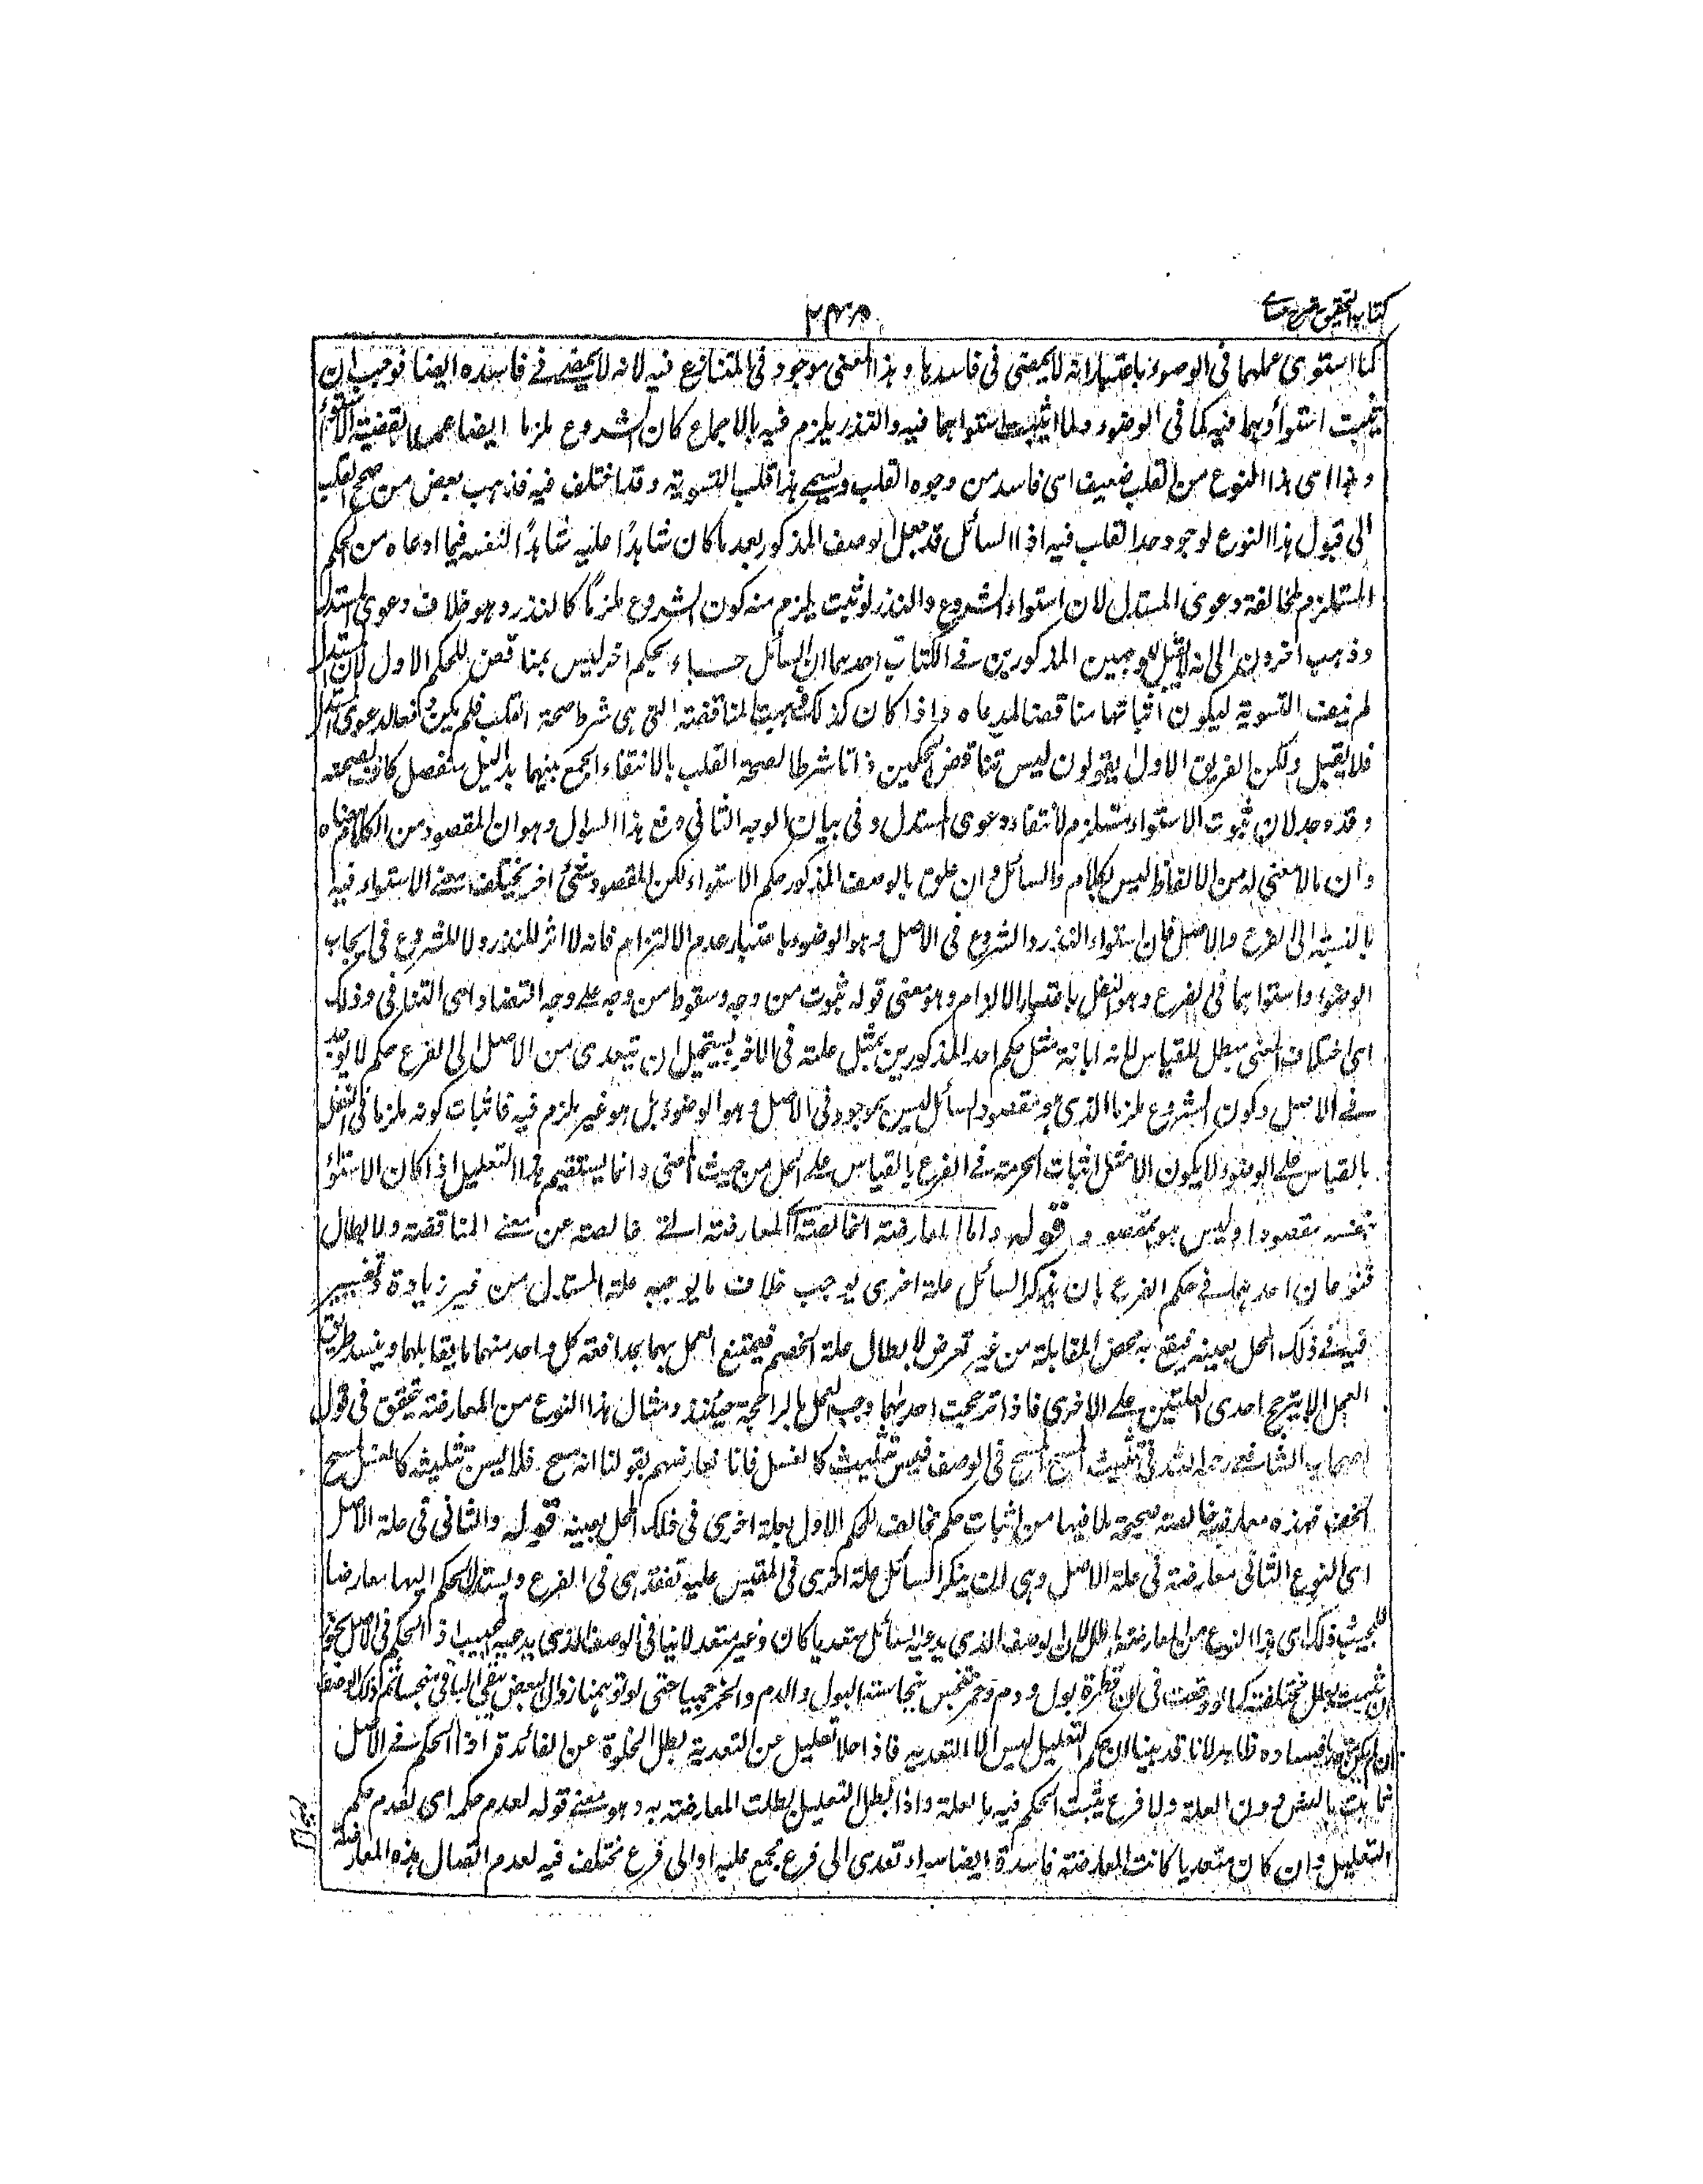 كتاب التحقيق شرح حسامى
كما استوى عملهما فى الوضوء باعتبار انه لا يمضى فى فاسدها وهذا المعنى موجود فى المتنازع فيه لانه لا يمضى فى فاسده ايضا فوجب ان
يثبت استواؤهما فيه كما فى الوضوء ولما استواهما فيه والنذر يلزم فيه بالاجماع كان الشروع ملزما ايضا عملا بقضية
وهذا اى هذا النوع من القلب ضعيف اى فاسد من وجوه القلب ويسمى هذا قلب التسوية وقد اختلف فيه فذهب بعض من صحح القلب
الى قبول هذا النوع لوجود حد القلب فيه اذ السائل قد جعل الوصف المذكور بعد ما كان شاهدًا عليه شاهدًا لنفسه فيما ادعاه من الحكم
المستلزم لمخالفة دعوى المستدل لان استواء الشروع والنذر لو ثبت يلزم منه كون الشروع ملزمًا كالنذر وهو خلاف دعوى المستدل
وذهب اخرون الى انه لا يقبل لوجهين المذكورين فى الكتاب احدهما ان السائل جاء بحكم اخر ليس بمناقض للحكم الاول لان المستدل
لم ينف التسوية ليكون اثباتها مناقضا لمدعاه واذا كان كذلك المناقضة التى هى شرط صحة القلب فلم يكن دافعا لدعوى المستدل
فلا يقبل ولكن الفريق الاول يقولون ليس تناقض الحكمين ذاتا شرطا لصحة القلب بل انتفاء الجمع بينهما بدليل منفصل كاف لصحته
وقد وجد لان ثبوت الاستواء مستلزم لانتفاء دعوى المستدل وفى بيان الوجه الثانى دفع هذا السوال وهو ان المقصود من الكلام معناه
وان ما لا معنى له من الالفاظ ليس بكلام والسائل وان علق بالوصف المذكور حكم الاستواء لكن المقصود شئ اخر يختلف معنى الاستواء فيه
بالنسبة الى الفرع والاصل فان استواء النذر والشروع فى الاصل وهو الوضوء باعتبار عدم الالتزام فانه لا اثر للنذر ولا للشروع فى ايجاب
الوضوء واستواهما فى الفرع وهو النفل باعتبار الالزام وهو معنى قوله ثبوت من وجه وسقوط من وجه على وجه التضاد اى التنافى وذلك
اى اختلاف المعنى مبطل للقياس لانه ابانة مثل حكم احد المذكورين بمثل علته فى الاخر ويستحيل ان يتعدى من الاصل الى الفرع حكم لا يوجد
فى الاصل وكون الشروع ملزما الذى هو مقصود السائل ليس بموجود فى الاصل وهو الوضوء بل هو غير ملزم فيه فاثبات كونه ملزما فى النفل
بالقياس على الوضوء لا يكون الا مثل اثبات الحرمة فى الفرع بالقياس على الحل من حيث المعنى وانما يستقيم هذا التعليل اذا كان الاستواء
بنفسه مقصودا وليس هو بمقصود قوله واما المعارضة الخالصة المعارضة التى خالصة عن معنى المناقضة والابطال
فنوعان احدهما فى حكم الفرع بان يذكر السائل علة اخرى يوجب خلاف ما يوجبه علة المستدل من غير زيادة وتغيير
فيه فى ذلك المحل بعينه فيقع به محض المقابلة من غير تعرض لابطال علة الخصم فيمتنع العمل بهما لمدافعة كل واحد منهما ما يقابلها وينسد طريق
العمل الا بترجح احدى العلتين على الاخرى فاذا ترجحت احدهما وجب العمل بالراجحة حينئذ ومثال هذا النوع من المعارضة تحقق فى قول
اصحاب الشافعى رحمه الله فى تثليث المسح المسح فى الوصف فيسن تثليثه كالغسل فانا نعارضهم بقولنا انه مسح فلا يسن تثليثه كمسح
الخف فهذه معارضة خالصة صحيحة لما فيها من اثبات حكم مخالف للحكم الاول بعلة اخرى فى ذلك المحل بعينه قوله والثانى فى علة الاصل
اى النوع الثانى معارضة فى علة الاصل وهى ان يذكر السائل علة اخرى فى المقيس عليه تفقد هى فى الفرع ويسند الحكم اليها معارضا
للمجيب وذلك اى هذا النوع من المعارضة باطل لان الوصف الذى يدعيه السائل متعديا كان او غير متعد لا ينافى الوصف الذى يدعيه المجيب اذ الحكم فى الاصل يجوز
ان يثبت بعلل مختلفة كما لو وقعت فى دن قطرة بول ودم وخمر تنجس بنجاسة البول والدم والخمر جميعا حتى لو توهمنا زوال البعض بقى الباقى منجسا ثم ذلك الوصف
ان لم يكن متعديا ففساده ظاهر لانا قد بينا ان حكم التعليل ليس الا التعدية فاذا خلا تعليل عن التعدية بطل لخلوه عن الفائدة اذ الحكم فى الاصل
ثابت بالنص دون العلة ولا فرع يثبت الحكم فيه بالعلة واذا بطل التعليل بطلت المعارضة به وهو معنى قوله لعدم حكمه اى لعدم حكم
التعليل وان كان متعديا كانت المعارضة فاسدة ايضا سواء تعدى الى فرع مجمع عليه او الى فرع مختلف فيه لعدم اتصال هذه المعارضة